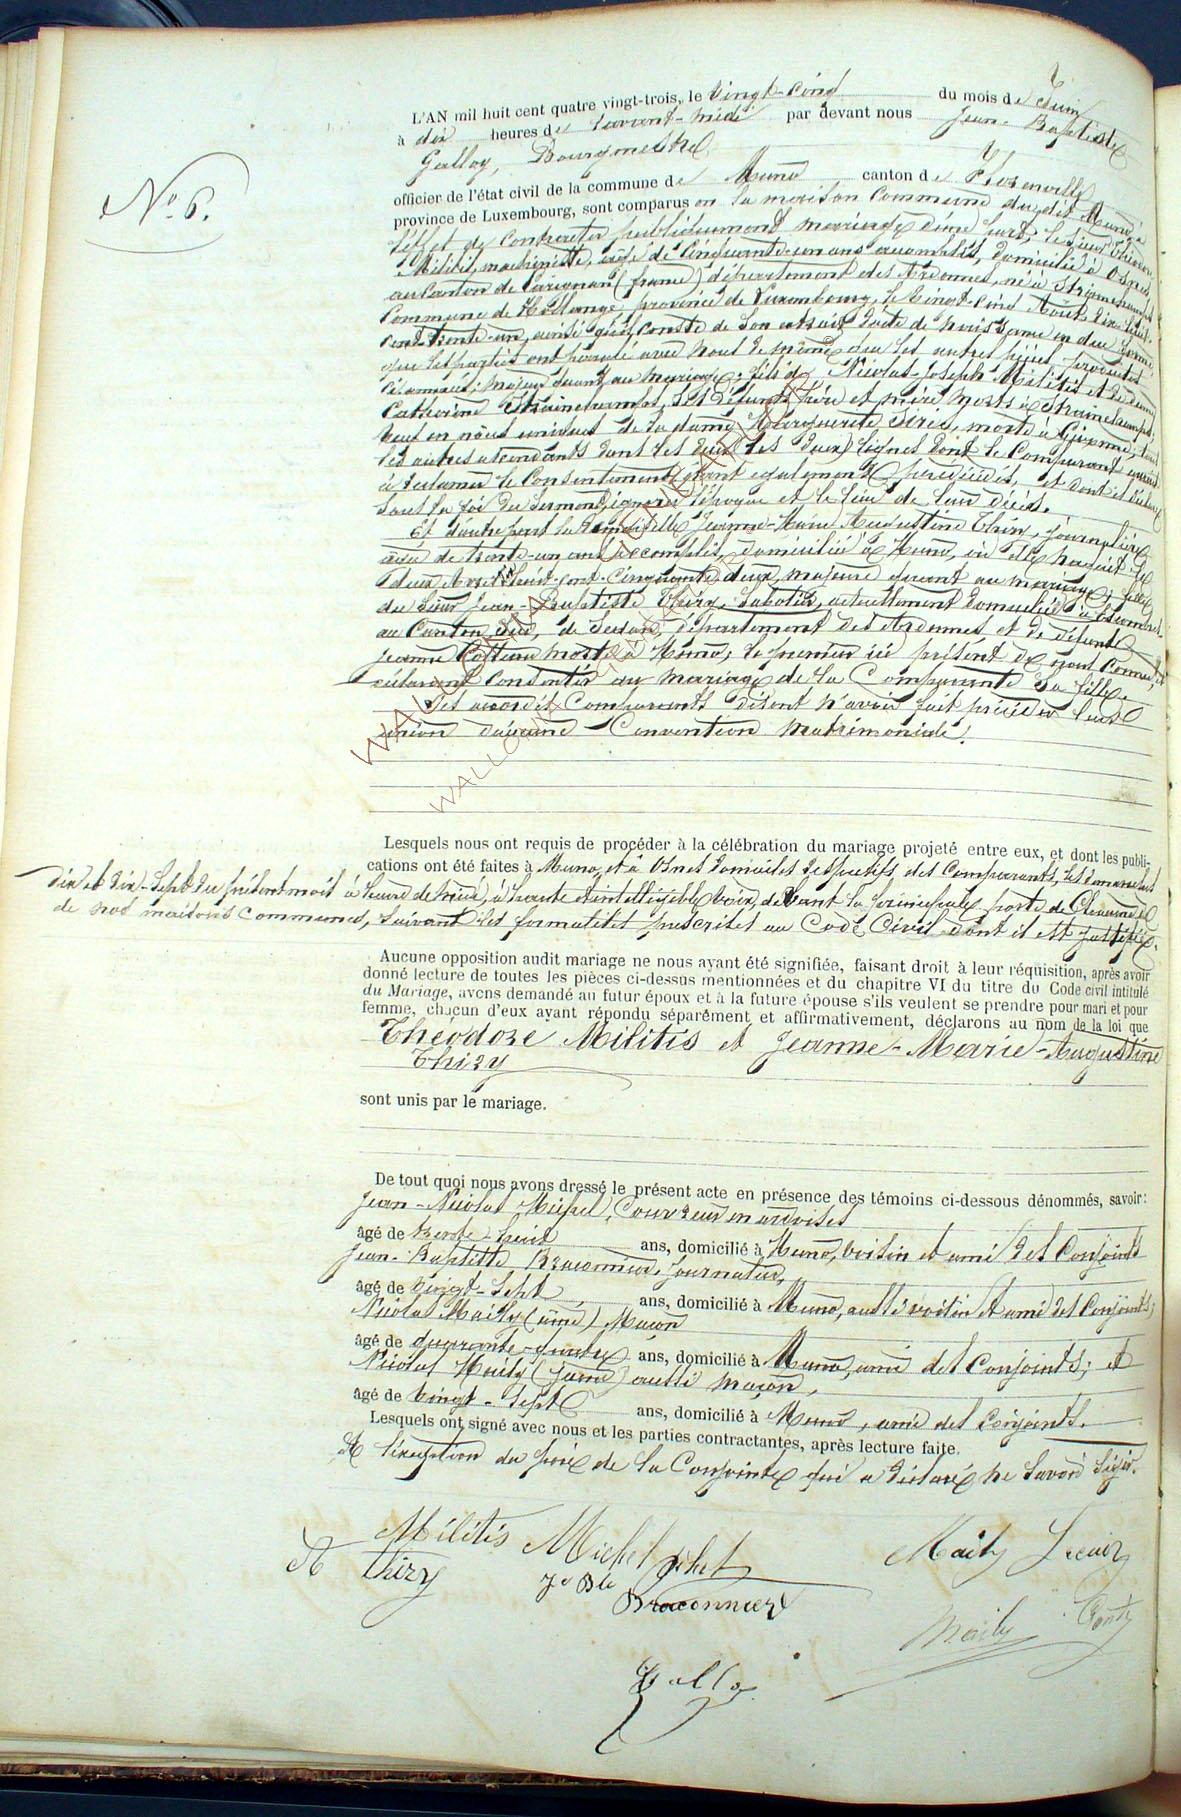 L'AN mil huit cent quatre vingt-trois, le vingt-cinq du mois de Juin
à dix heures de l'avant-midi par devant nous Jean-Baptiste
Galloy, Bourgmestre
officier de l'état civil de la commune de Muno canton de Florenville
province de Luxembourg, sont comparus en la maison Commune du dit Muno à
l'effet de Contracter publiquement mariage d'une part, le sieur Théodore
Militis, machiniste, âgé de Cinquante-un ans accomplis, domicilié à Osnes,
au Canton de Carignan (france) département des Ardennes, né à Strainchamps,
Commune de Hollange, province de Luxembourg, le vingt-cinq Août dix-huit-
cent-trente-un, ainsi qu'il Conste de Son extrait d'acte de naissance
que les parties ont paraphé avec nous de même que les autres pièces produites
majeur quant au mariage; fils de Nicolas-Joseph Militis et de
Catherine Strainchamps, Ses défunts père et mère morts à Strainchamps;
veuf en de la dame Marguerite morte à
les autres ascendants dans les deux lignes dont le Comparant aurait
à réclamer le Consentement étant également prédécédés, et dont il déclare
sous la foi du Serment ignorer l'époque et le lieu de leur décès.
Et d'autre part la Demoiselle Jeanne-Marie Augustine Thiry, journalière
âgée de trente-un ans accomplis, domiciliée à Muno, où elle naquit le
deux huit-cent-Cinquante deux, majeure quant au mariage, fille
du Sieur Jean-Baptiste Thiry, Sabotier, actuellement domicilié à
au Canton Sud, de Sedan, département des Ardennes et de défunte
Jeanne morte à Muno; le premier ici présent de nous Connu,
déclarant Consentir au mariage de la Comparante Sa fille.
Les Comparants disent n'avoir fait précéder leur
union d'aucune Convention matrimoniale.
Lesquels nous ont requis de procéder à la célébration du mariage projeté entre eux, et dont les publi-
cations ont été faites à Muno, et à Osnes domiciles respectifs des Comparants, les dimanches
dix et dix-Sept du présent mois à heure de midi, à haute et intelligible voix, devant la principale porte de Chacune
de nos maisons Communes, Suivant les formalités prescrites au Code Civil dont il est justifié.
Aucune opposition audit mariage ne nous ayant été signifiée, faisant droit à leur réquisition, après avoir
donné lecture de toutes les pièces ci-dessus mentionnées et du chapitre VI du titre du Code civil intitulé
du Mariage, avons demandé au futur époux et à la future épouse s'ils veulent se prendre pour mari et pour
femme, chacun d'eux ayant répondu séparément et affirmativement, déclarons au nom de la loi que
Théodore Militis et Jeanne-Marie-Augustine
Thiry
sont unis par le mariage.
De tout quoi nous avons dressé le présent acte en présence des témoins ci-dessous dénommés, savoir:
Jean-Nicolas Michel, Couvreur en ardoises
âgé de trente-huit ans, domicilié à Muno, voisin et ami des Conjoints
Jean-Baptiste Braconnier, Journalier,
âgé de vingt-sept ans, domicilié à Muno, aussi voisin et ami des Conjoints;
Nicolas Maily (aîné) Maçon
âgé de quarante-quatre ans, domicilié à Muno, ami des Conjoints; et
Nicolas Maily (jeune) aussi maçon,
âgé de vingt-sept ans, domicilié à Muno, ami des Conjoints.
Lesquels ont signé avec nous et les parties contractantes, après lecture faite.
à l'exception du père de la Conjointe qui a déclaré ne savoir signer.
Militis Michel Maily
A Thiry Jn Bte
Braconnier
Maily
Galloy
No. 6.